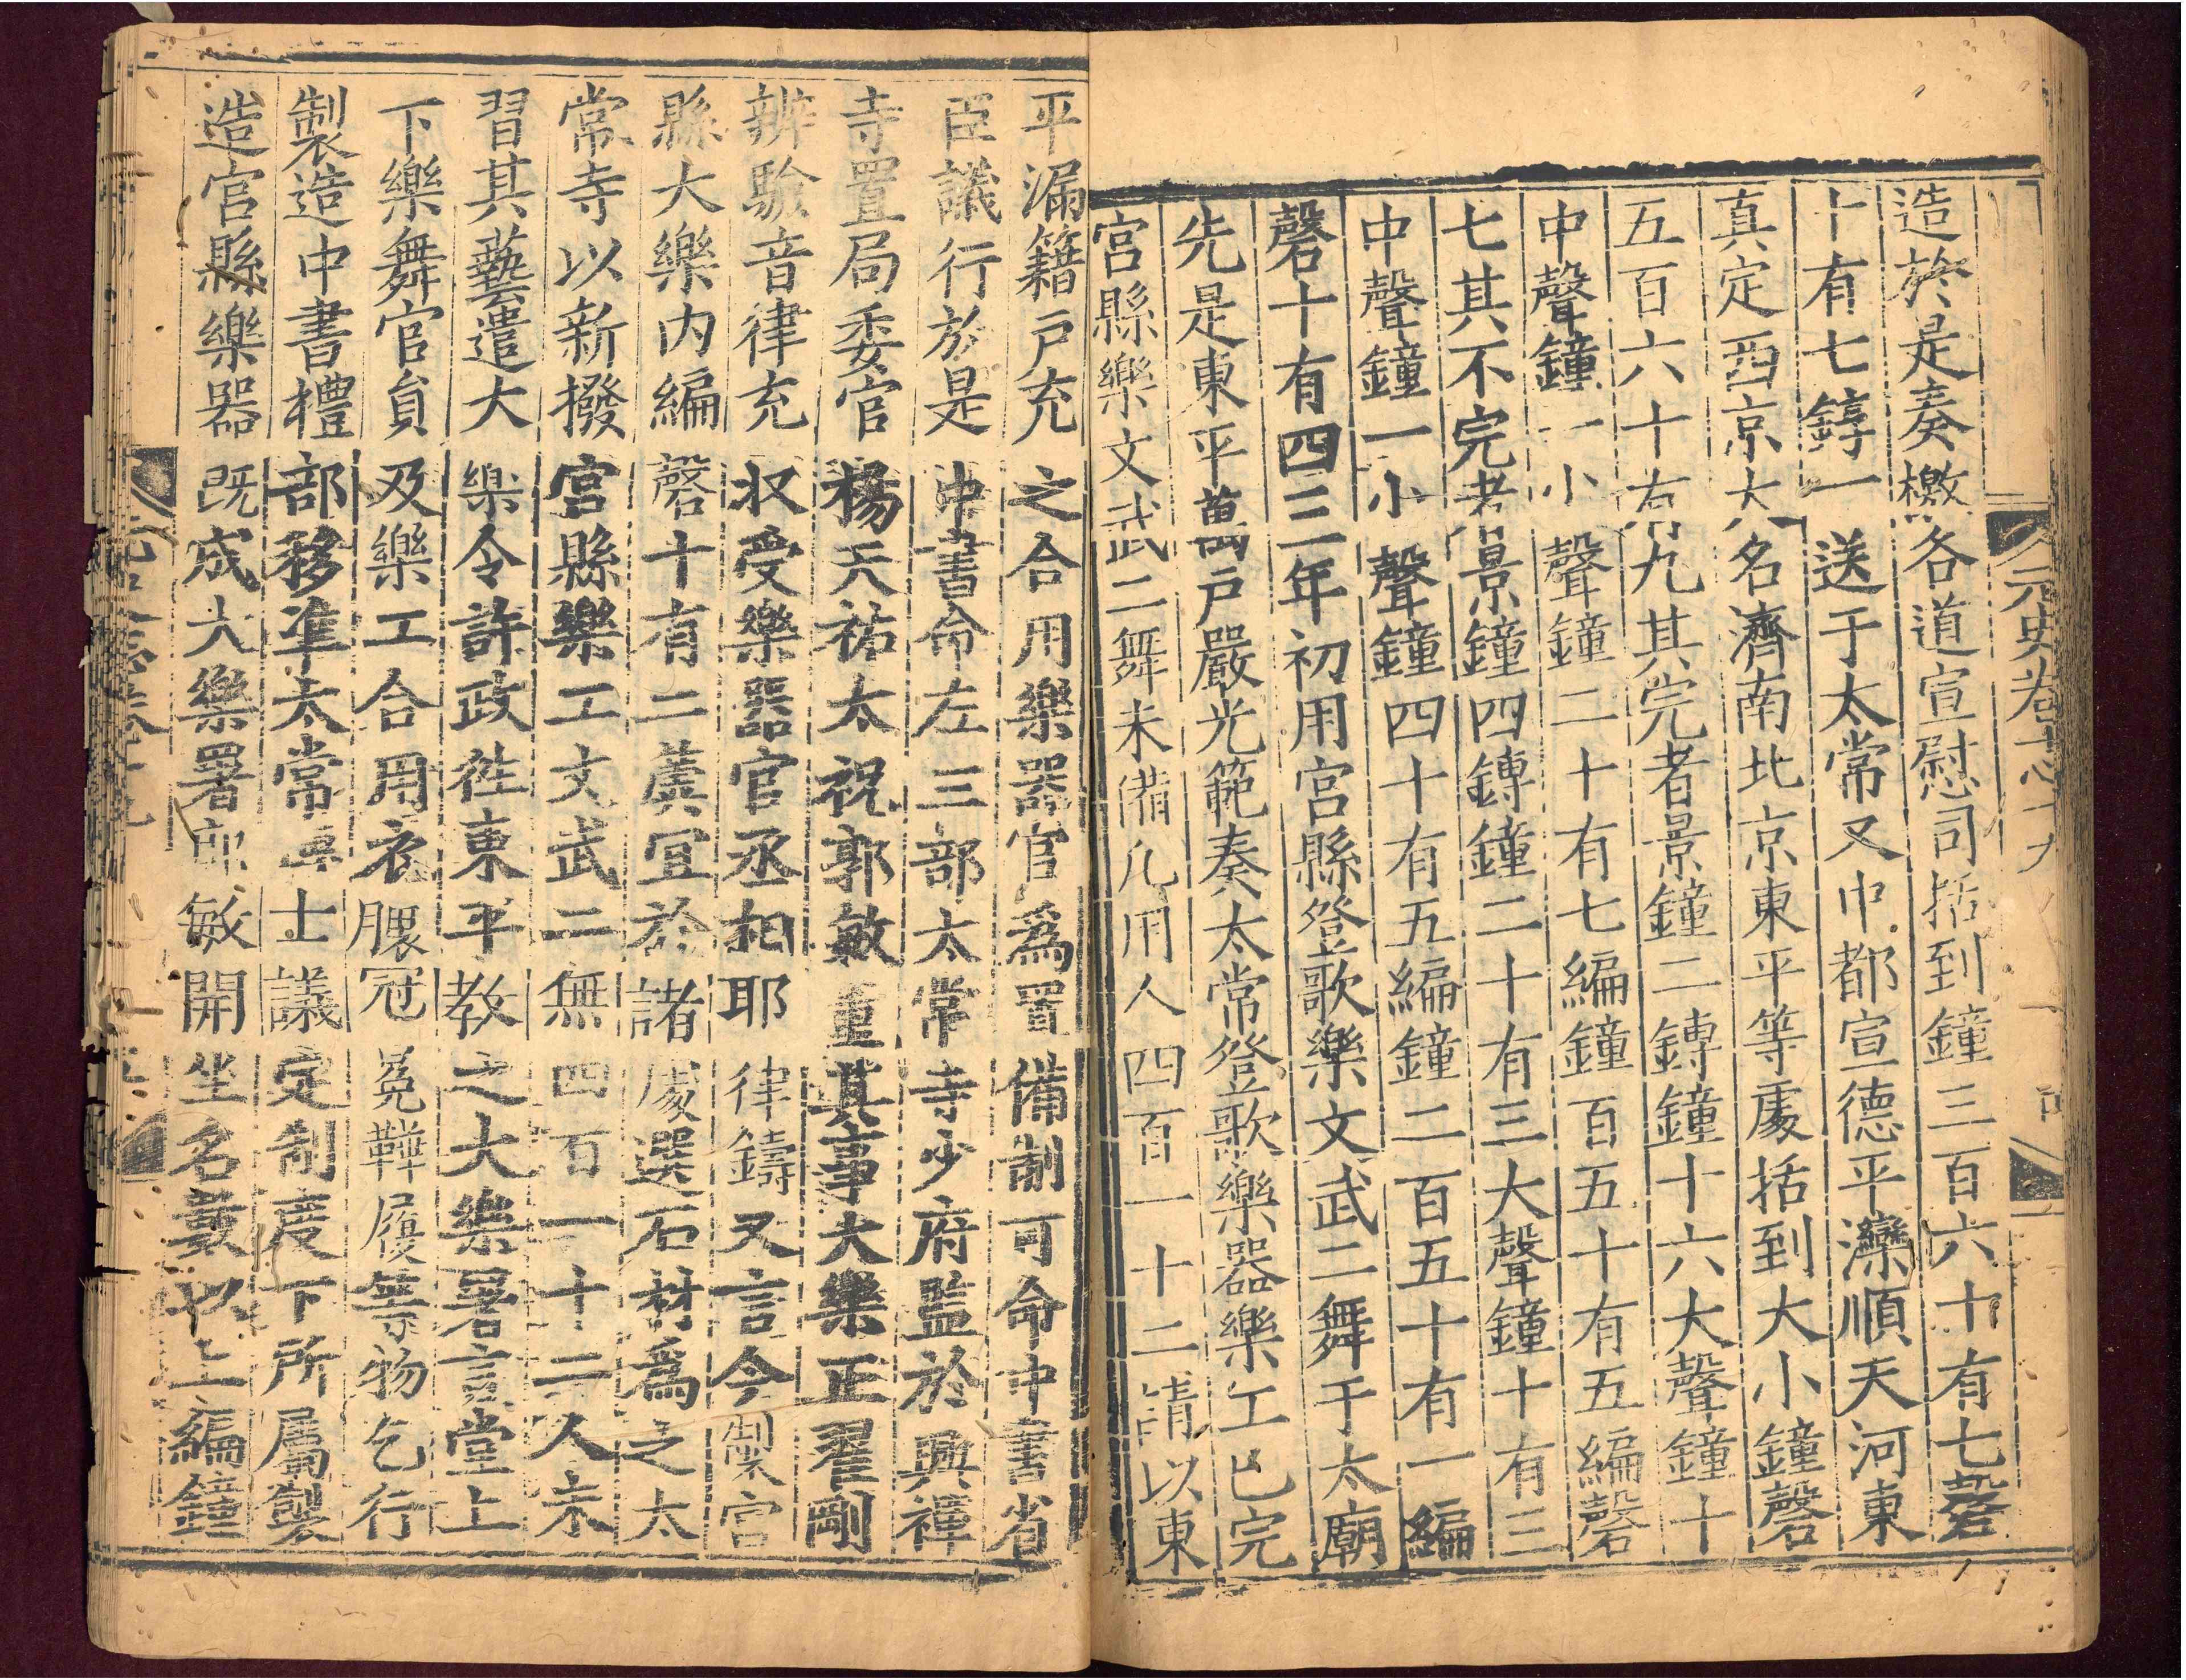 元史卷志十九
造於是奏檄各道宣慰司括到鐘三百六十有七磬
十有七錞一送于太常又中都宣德平灤順天河東
真定西京大名濟南北京東平等處括到大小鐘磬
五百六十有九其完者景鐘二鎛鐘十六大聲鐘十
中聲鐘一小聲鐘二十有七編鐘百五十有五編磬
七其不完者景鐘四鎛鐘二十有三大聲鐘十有三
中聲鐘一小聲鐘四十有五編鐘二百五十有一編
磬十有四三年初用宮縣登歌樂文武二舞于太廟
先是東平萬戶嚴光範奏太常登歌樂器樂工已完
宮縣樂文武二舞未備凡用人四百一十二請以東
平漏籍戶充之合用樂器官為置備制可命中書省
臣議行於是中書命左三部太常寺少府監於興禪
寺置局委官楊天祐太祝郭敏董其事大樂正翟剛
辨驗音律充收受樂器官丞相耶律鑄又言今製宮
縣大樂內編磬十有二虡宜於諸處選石材為之太
常寺以新撥宮縣樂工文武二無四百一十二人未
習其藝遣大樂令許政徃東平教之大樂署言堂上
下樂舞官員及樂工合用衣服冠冕鞾履等物乞行
製造中書禮部移準太常博士議定制度下所屬製
造宮縣樂器既成大樂署郭敏開坐名數以上編鐘